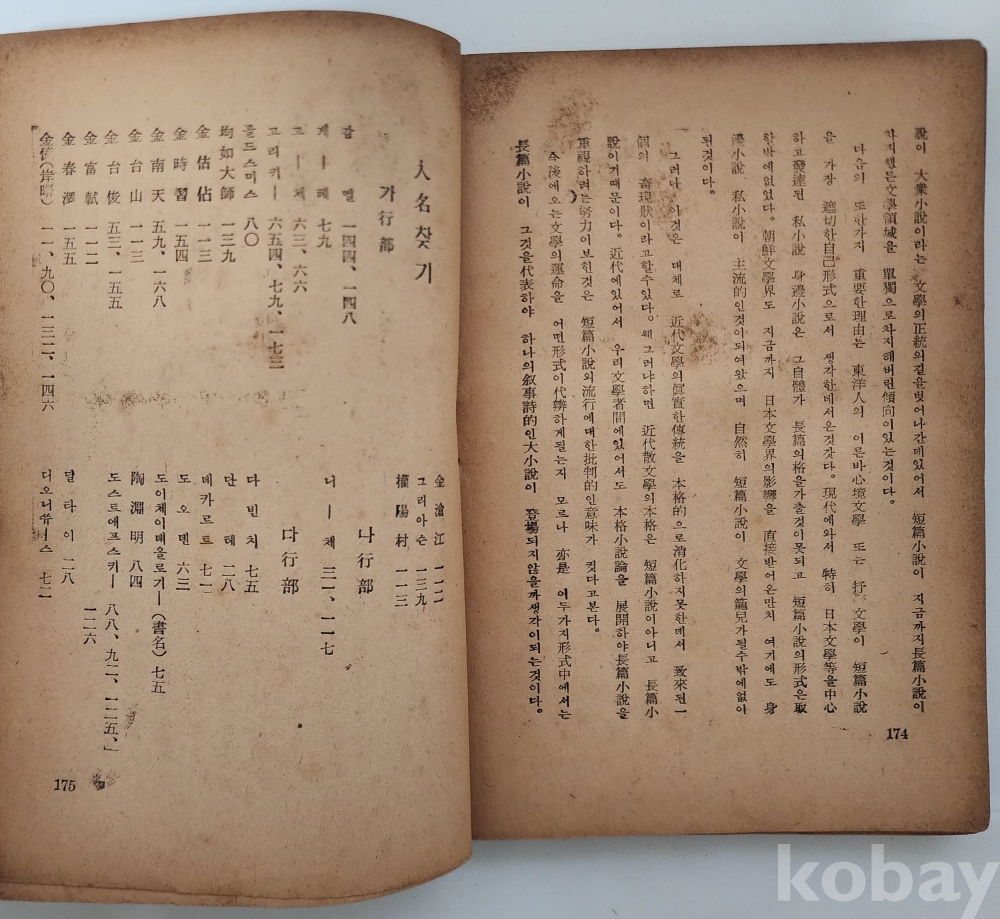 說이 大衆小說이라는 文學의正統의길을벗어나간데있어서 短篇小說이 지금까지長篇小說이
차지했든文學領域을 單獨으로차지해버린傾向이있는것이다.
다음의 또한가지 重要한理由는 東洋人의 이른바心境文學 또는 抒 文學이 短篇小說
을 가장 適切한自己形式으로서 생각한데서온것갓다. 現代에와서 特히 日本文學等을中心
하고發達된 私小說 身邊小說은 그自體가 長篇의格을가출것이못되고 短篇小說의形式은取
할밖에없었다. 朝鮮文學界도 지금까지 日本文學界의影響을 直接받어온만치 여기에도 身
邊小說 私小說이 主流的인것이되여왔으며 自然히 短篇小說이 文學의寵兒가될수밖에없아
된것이다.
그러나 이것은 대체로 近代文學의眞實한傳統을 本格的으로消化하지못한데서 致來된一
個의 奇現狀이라고할수있다. 웨그러냐하면 近代散文學의本格은 短篇小說이아니고 長篇小
說이기때문이다. 近代에있어서 우리文學者間에있어서도 本格小說論을 展開하야長篇小說을
重視하려는努力이보힌것은 短篇小說의流行에대한批判的인意味가 컷다고본다.
今後에오는文學의運命을 어떤形式이代辨하게될는지 모르나 亦是 어두가지形式中에서는
長篇小說이 그것을代表하야 하나의叙事詩的인大小說이 登場되지않을까생각이되는것이다.
174
人名찾기
가行部
감멜 一四四、一四八
게ー레 七九
고ー체 六三、六六
고리키ー 六五四、七九、一七三
골드스미스 八〇
均如大師 一三九
金佔佔 一一三
金時習 一五四
金南天 五九、一六八
金台山 一一三
金台俊 五三、一五五
金富軾 一一二
金春澤 一五五
金億(岸曙) 一一、九〇、一三二、一四六
金滄江 一一二
그리아슨 一三九
權陽村 一一三
나行部
니ー채 三一、一一七
다行部
다빈치 七五
단테 二八
데카르트 七一
도오멘 六三
도이체이데올로기ー(書名) 七五
陶淵明 八四
도스트에프스키ー 八八、九二、一二五、
一二六
딜타이 二八
디오니쮸ー스 七二
175
kobay